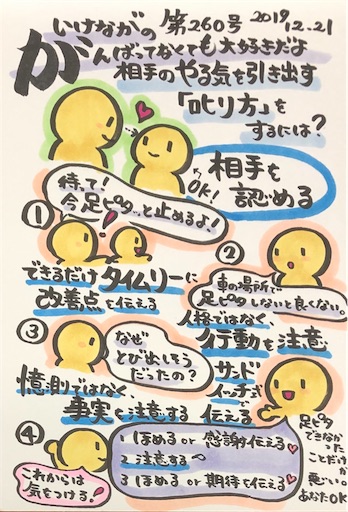 いけながの 第260号 2019 12.21
がんばってなくても大好きだよ
相手のやる気を引き出す
「叱り方」を
するには?
OK!
相手を
認める
①
待って!
今足ピタッと止めるよ!
できるだけタイムリーに
改善点を伝える
②
車の場所で
足ピタしないと良くない。
人格ではなく、
行動を注意
③
なぜ
とび出しそう
だったの?
憶測ではなく、
事実を注意する
サンド
イッチ式
伝える
④
これからは
気をつける!
1 ほめる or 感謝を伝える
2 注意する
3 ほめる or 期待を伝える
足ピタ
できなかっ
たことだけ
が悪い。
あなたOK